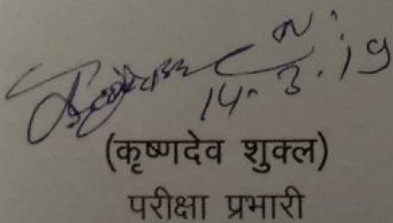 14.3.19
(कृष्णदेव शुक्ल)
परीक्षा प्रभारी